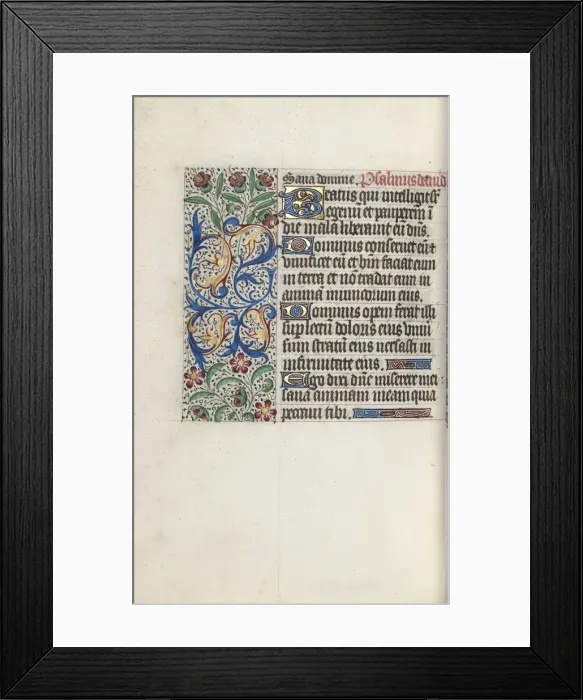 Sana domine. Psalmus david
Beatus qui intelligit sr̄
egenū et pauperem ī
die mala liberabit eū dn̄s.
Dominus conservet eū ⁊
vivificet eū et bm̄ faciat eum
in terra et nō tradat eum in
animam inimicorum eius.
Dominus opem ferat illi
sup̄ lectū doloris eius vniū
sum stratū eius versasti in
infirmitate eius.
Ego dixi dn̄e miserere mei
sana animam meam quia
peccavi tibi.